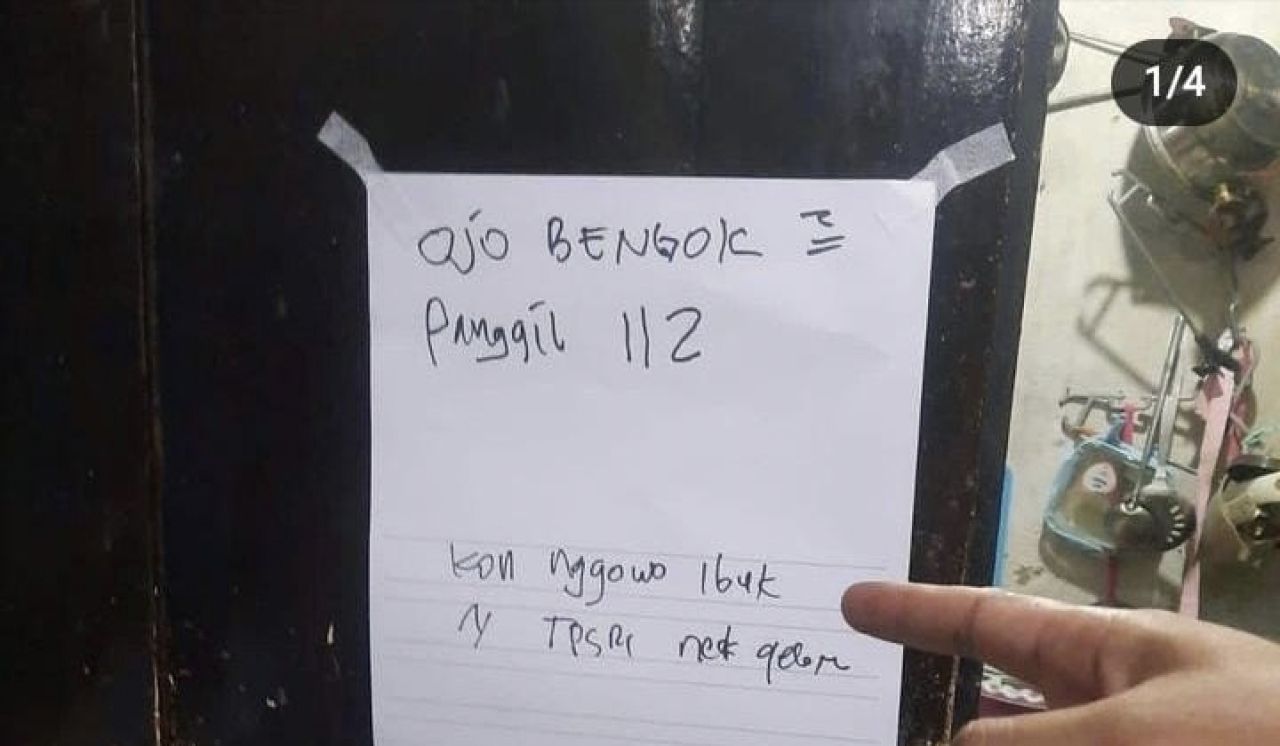 1/4
OJO BENGOK =
Panggil 112
kon nggowo Ibuk
N TPSRI nek gelem